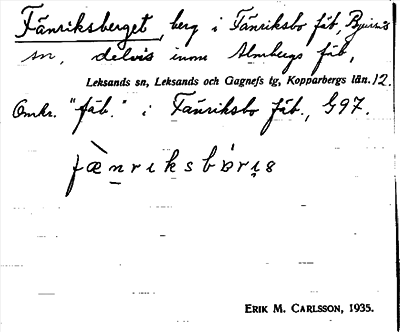 Fänriksberget, berg i Fänriksbo fäb, Bjursås
sn, delvis inom Almbergs fäb,
Leksands sn, Leksands och Gagnefs tg, Kopparbergs län. 12.
Omkr. "fäb." i Fänriksbo fäb., G97.
fænriksbæris
ERIK M. CARLSSON, 1935.